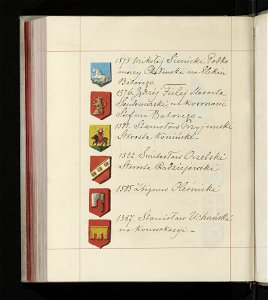 1575 Mikołaj Sienicki Podko
morzy Chełmski na elekcii
Batorego.
1576. Jędrzej Firlej starosta
Sandomierski na koronacii
Stefana Batorego.
Stanisław Przyjemski
Starosta Koniński.
1582. Świętosław Orzelski
Starosta Radziejowski.
1585 Zbigniew Oleśnicki
1587. Stanisław Uchański
na konwokacyi.